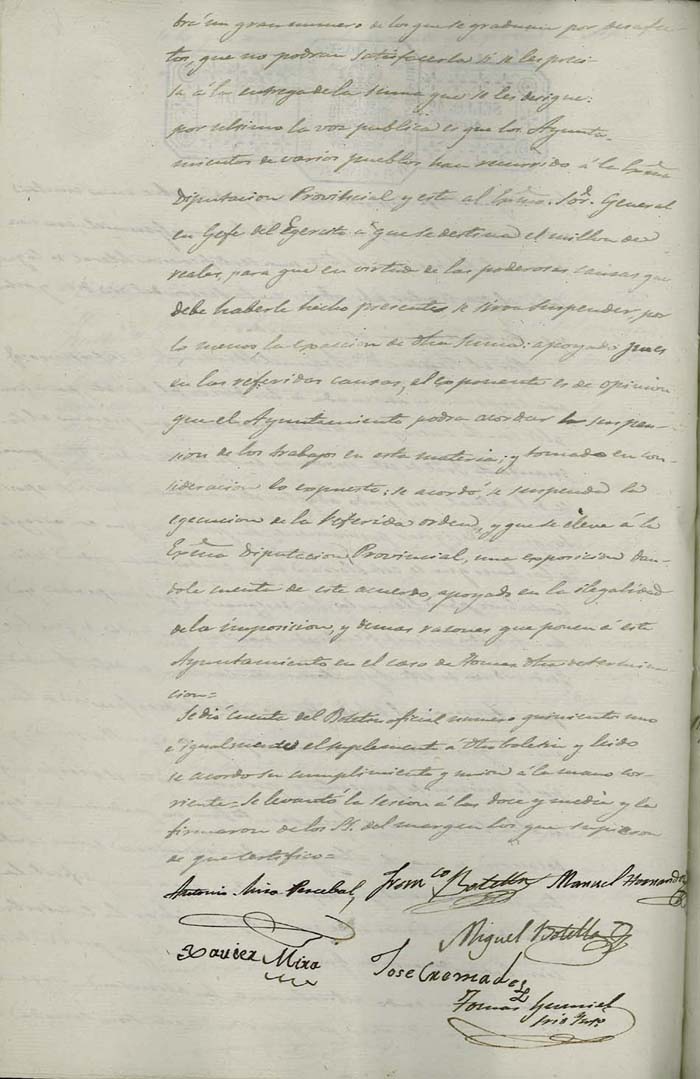 brá un gran numero de los que se graduan por desafec-
tos, que no podran satisfacerla si se les preci-
sa á la entrega de la suma que se les designe:
por ultimo la voz publica es que los Ayunta-
mientos de varios pueblos han recurrido á la Exma
Diputacion Provincial y esta al Exmo. Sor. General
en Gefe del Egercito á que se destina el millon de
reales, para que en virtud de las poderosas causas que
debe haberle hecho presentes se sirva suspender, por
lo menos la exaccion de dha suma: apoyado pues
en las referidas causas, el exponente es de opinion
que el Ayuntamiento podra acordar la suspen-
sion de los trabajos en esta materia; y tomado en con-
sideracion lo expuesto; se acordó se suspenda la
egecucion de la referida orden, y que se eleve á la
Exma Diputacion Provincial, una exposicion dan-
dole cuenta de este acuerdo, apoyado en la ilegalidad
de la imposicion, y demas razones que ponen á este
Ayuntamiento en el caso de tomar dha determina-
cion=
Se dió cuenta del Boletin oficial numero quinientos uno
é igualmente el suplemento á dho boletin y leido
se acordo su cumplimiento y union á la mano cor-
riente= Se levantó la sesion á las doce y media y la
firmaron de los SS. del margen los que supieron
de que certifico=
Antonio Mira Percebal Franco Botella Manuel Hernandez
Miguel Botella
Xavier Mira Jose
Tomas
srio